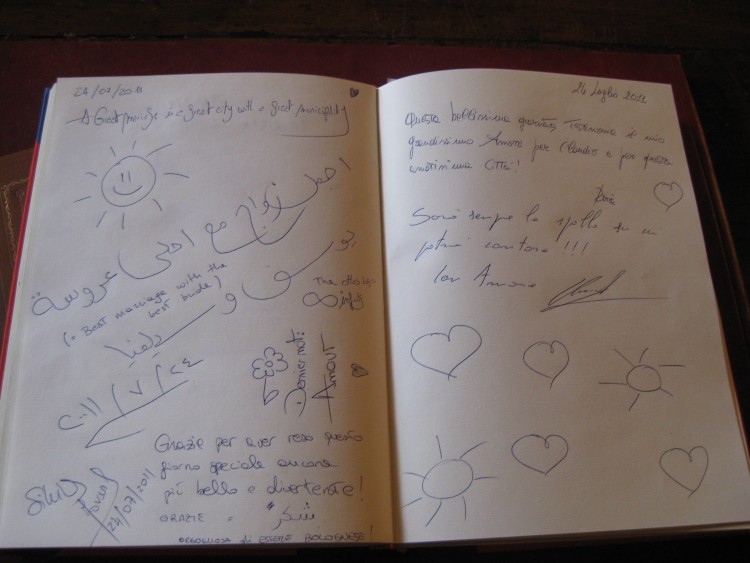 24/07/2011
A Great marriage in a great city with a great municipality
اجمل زواج مع احلى عروسة
(= Best marriage with the
best bride)
يوسف و سيلفيا
The otherways
infinity
٢٠١١/٧/٢٤
Dernier mot:
Amour
Grazie per aver reso questo
giorno speciale ancora
più bello e divertente!
GRAZIE = "شكر"
ORGOGLIOSA di ESSERE BOLOGNESE!
Silvia
24/07/2011
24 Luglio 2011
Questa bellissima giornata Testimonia il mio
grandissimo Amore per Claudio e per questa
Città!
Sarò sempre la spalla su cui
potrai contare!!!